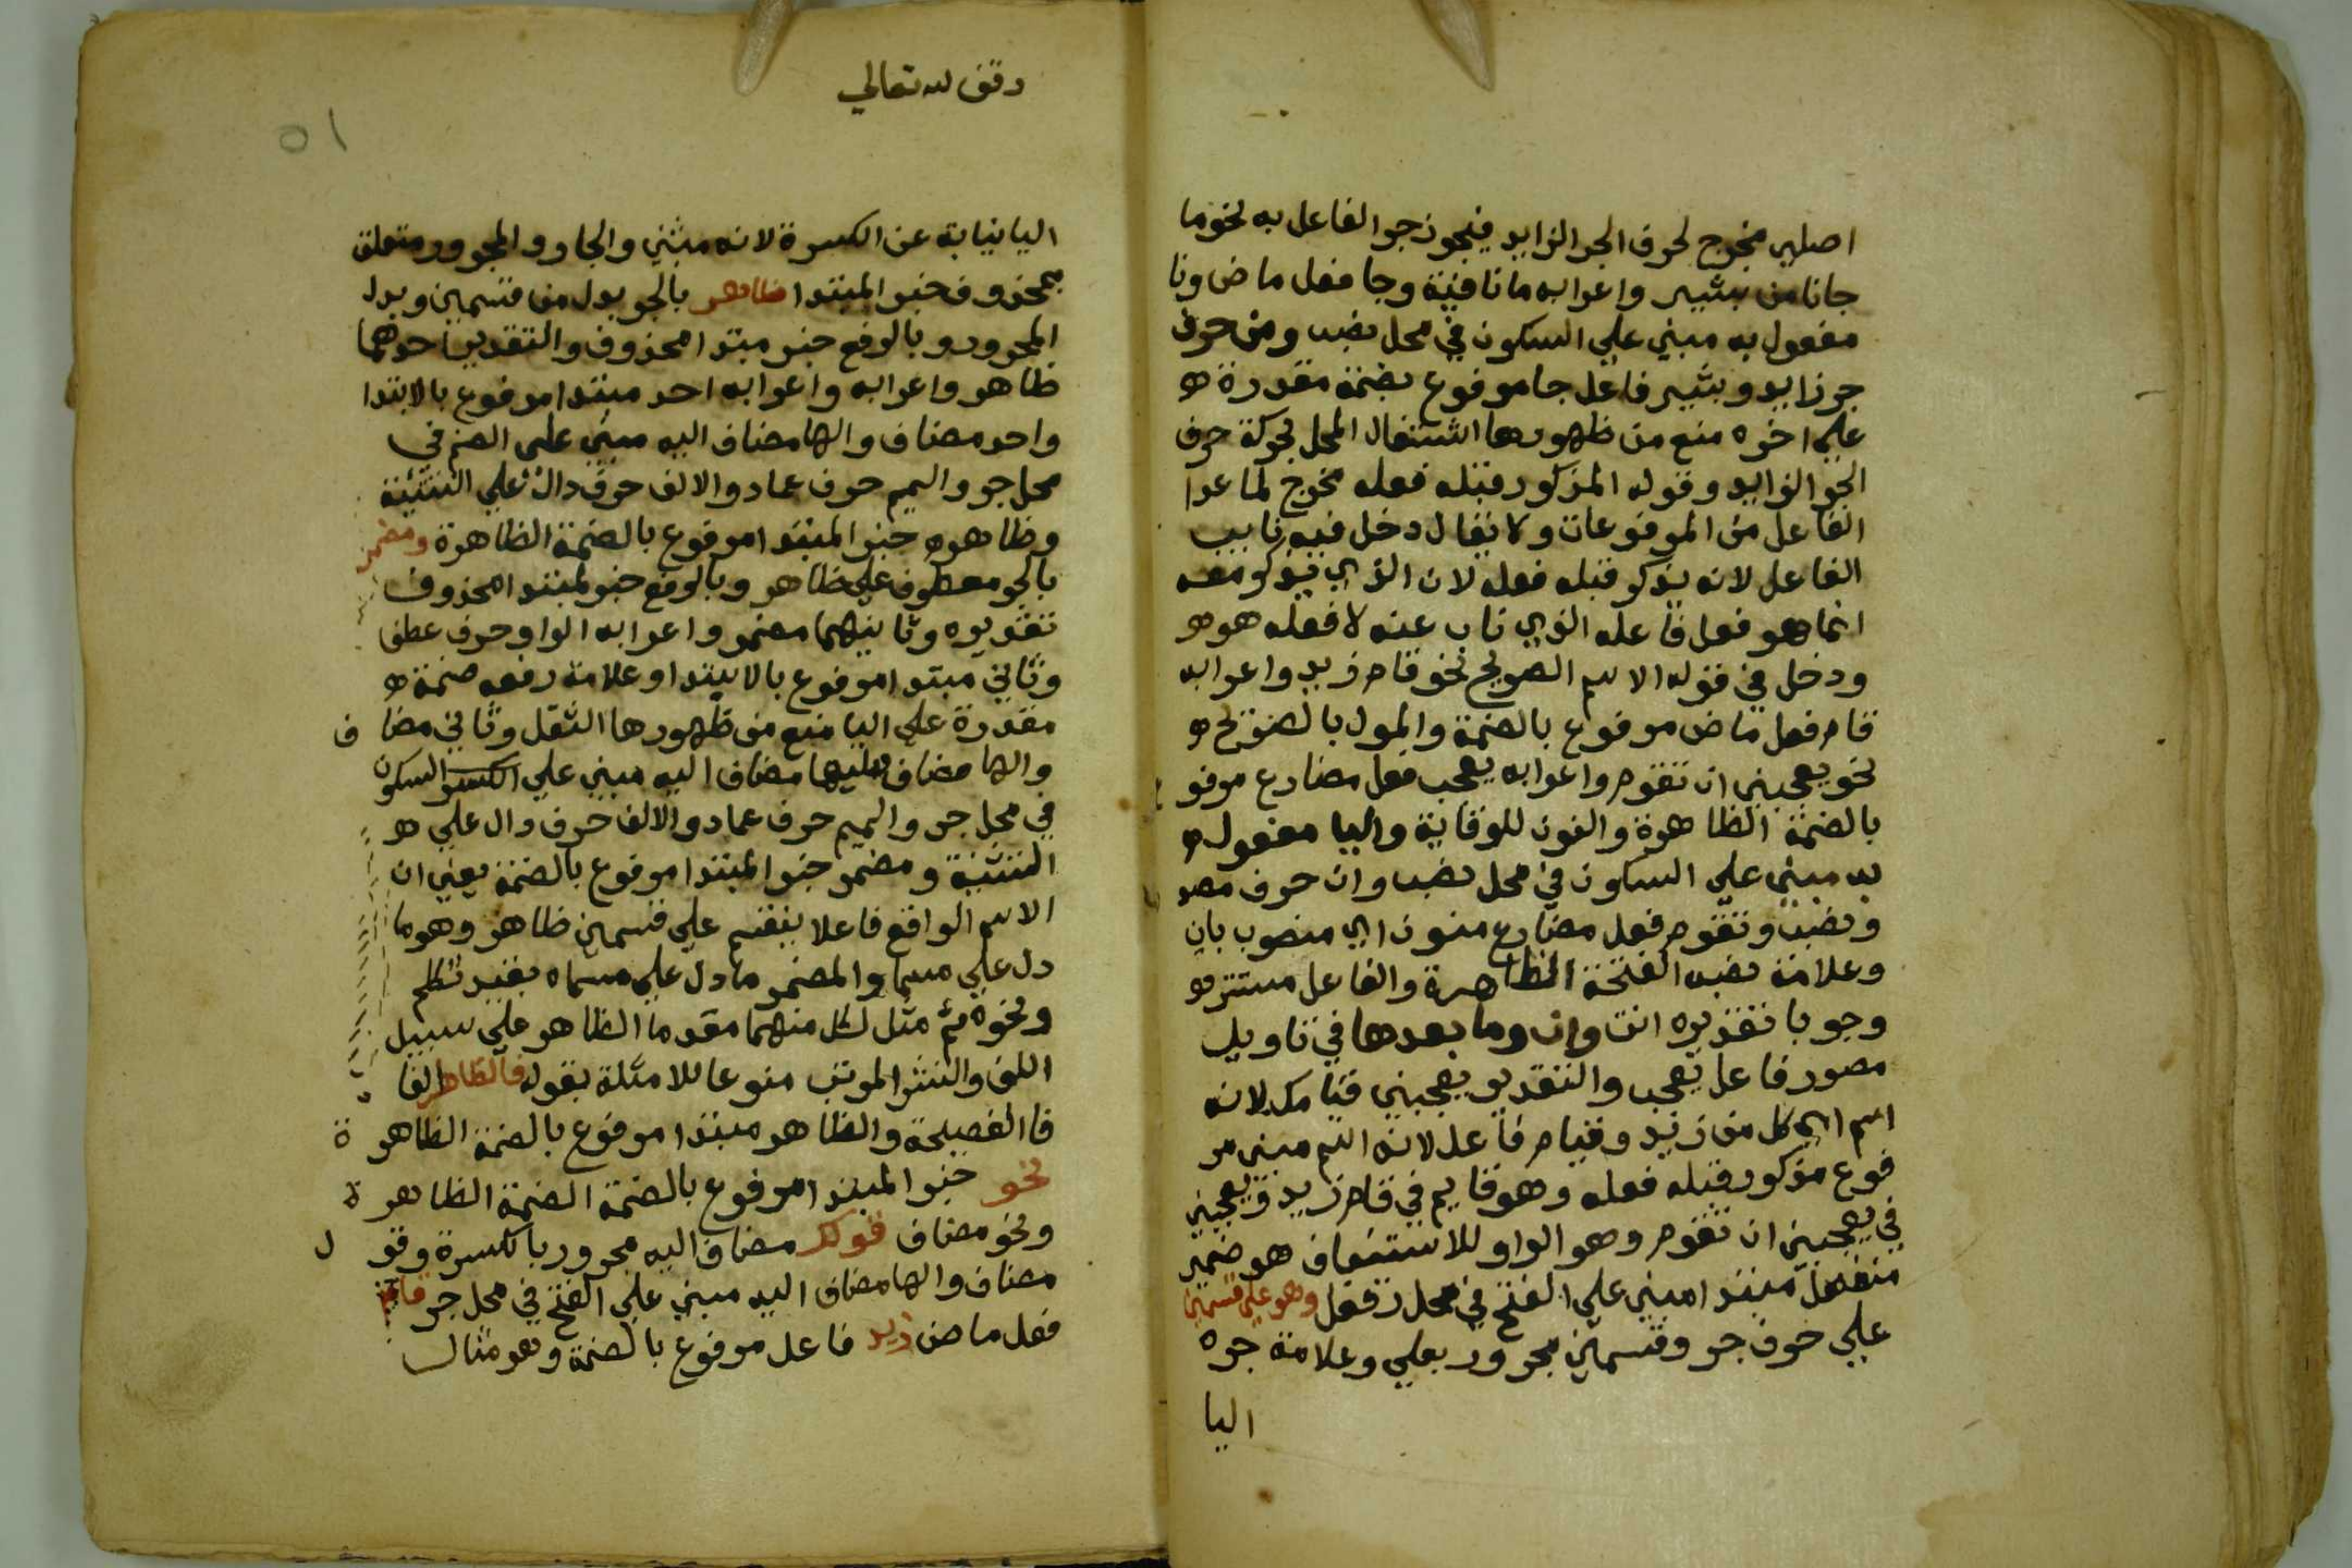 اصلي مخرج لحرف الجر الزايد فيجوز جر الفاعل به نحو ما
جانا من بشير واعرابه ما نافية وجا فعل ماض ونا
مفعول به مبني علي السكون في محل نصب ومن حرف
جر زايد وبشير فاعل جا مرفوع بضمة مقدرة
علي اخره منع من ظهورها اشتغال المحل بحركة حرف
الجر الزايد وقوله المذكور قبله فعله مخرج لما عدا
الفاعل من المرفوعات ولا يقال دخل فيه نايب
الفاعل لانه يذكر قبله فعله لان الذي يذكر معه
انما هو فعل فاعله الذي ناب عنه لا فعله هو
ودخل في قوله الاسم الصريح نحو قام زيد واعرابه
قام فعل ماض مرفوع بالضمة والمول بالصريح
نحو يعجبني ان تقوم واعرابه يعجب فعل مضارع مرفو ع
بالضمة الظاهرة والنون للوقاية واليا مفعول
به مبني علي السكون في محل نصب وان حرف مصد
ونصب وتقوم فعل مضارع منون اي منصوب بان
وعلامة نصبه الفتحة الظاهرة والفاعل مستتر
وجوبا تقديره انت وان وما بعدها في تاويل
مصدر فاعل يعجب والتقدير يعجبني قيامك لانه
اسم اي كل من زيد وقيام فاعل لانه اسم مبني مر
فوع مذكور قبله فعله وهو قايم في قام زيد ويعجبني
في يعجبني ان تقوم وهو الواو للاستئناف هو ضمير
منفصل مبتدا مبني علي الفتح في محل رفع وهو علي قسمين
علي حرف جر وقسمين مجرور بعلي وعلامة جره
اليا
وقف لله تعالي
٥١
اليا نيابة عن الكسرة لانه مثني والجار والمجرور متعلق
بمحذوف خبر المبتدا ظاهر بالجر بدل من قسمين وبدل
المجرور وبالرفع خبر مبتدا محذوف والتقدير احدهما
ظاهر واعرابه واعرابه احد مبتدا مرفوع بالابتدا
واحد مضاف والها مضاف اليه مبني علي الضم في
محل جر والميم حرف عماد والالف حرف دال علي التثنية
وظاهر خبر المبتدا مرفوع بالضمة الظاهرة ومضمر
بالجر معطوف علي ظاهر وبالرفع خبر لمبتدا محذوف
تقديره وثانيهما مضمر واعرابه الواو حرف عطف
وثاني مبتدا مرفوع بالابتدا وعلامة رفعه ضمة
مقدرة علي اليا منع من ظهورها الثقل وثاني مضا ف
والها مضاف اليها مضاف اليه مبني علي الكسر السكون
في محل جر والميم حرف عماد والالف حرف دال علي
التثنية ومضمر خبر المبتدا مرفوع بالضمة يعني ان
الاسم الواقع فاعلا ينقسم علي قسمين ظاهر وهو ما
دل علي مسما والمضمر ما دل علي مسماه بقيد تكلم
ونحوه ثم مثل لكل منهما مقدما الظاهر علي سبيل
اللف والنشر المرتب منوعا للامثلة بقوله فالظاهر الفا
فا الفصيحة والظاهر مبتدا مرفوع بالضمة الظاهر ة
نحو خبر المبتدا مرفوع بالضمة الضمة الظاهر ة
ونحو مضاف قولك مضاف اليه مجرور بالكسرة وقو ل
مضاف والها مضاف اليه مبني علي الفتح في محل جر قام
فعل ماض زيد فاعل مرفوع بالضمة وهو مثال